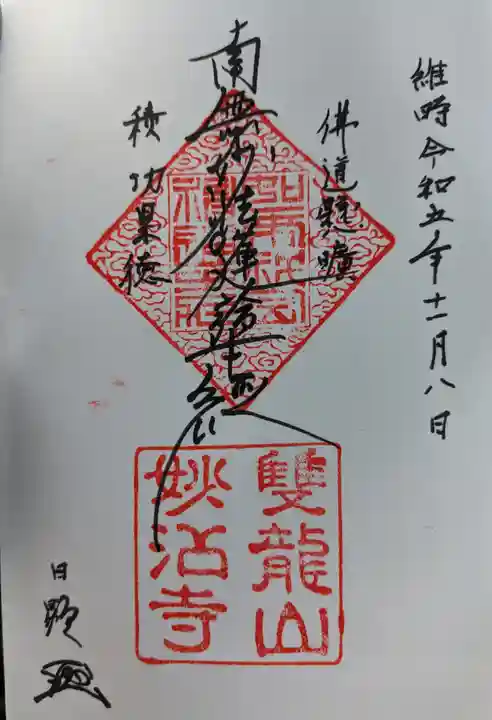 維時令和五年十一月八日
佛道懸曠
南無妙法蓮華経
積功累徳
雙龍山
妙法寺
日